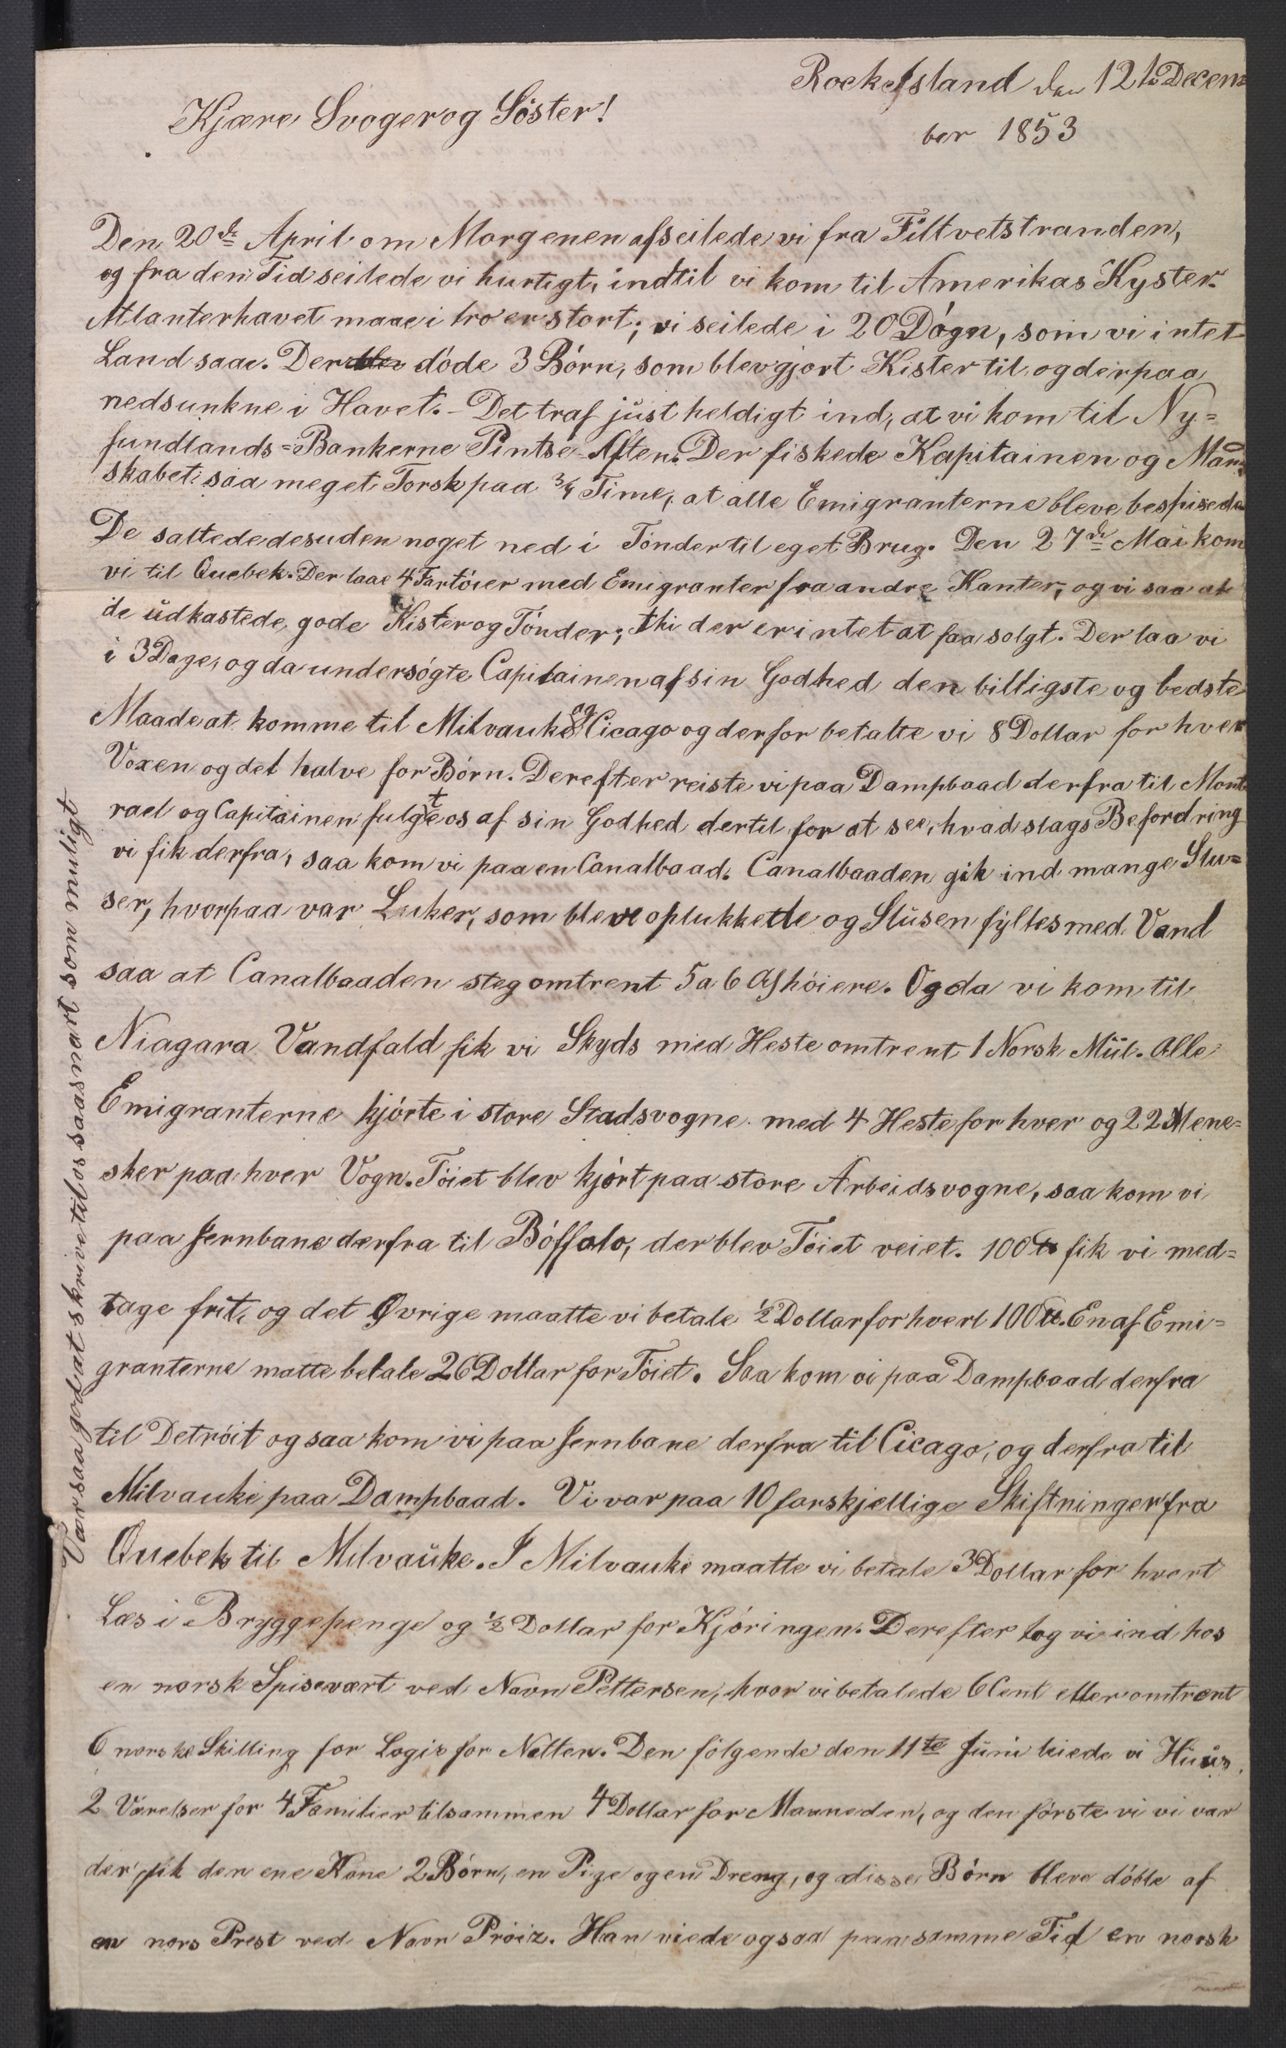 Rock Island den 12te Decem=
ber 1853
Kjære Svoger og Söster!
Den 20de April om Morgenen afseilede vi fra Filtvetstranden,
og fra den Tid seilede vi hurtigt, indtil vi kom til Amerikas Kyster.
Atlanterhavet maae i tro er stort; vi seilede i 20 Dögn, som vi intet
Land saae. Der döde 3 Börn, som blev gjort Kister til, og derpaa
nedsunkne i Havet. - Det traf just heldigt ind, at vi kom til Ny=
fundlands=Bankerne Pintse Aften. Der fiskede Kapitainen og Mand=
skabet saa meget Torsk paa 3/4 Time, at alle Emigranterne bleve bespisede.
De saltede desuden noget ned i Tönder til eget Brug. Den 27de Mai kom
vi til Quebek. Der laae 4 Fartöier med Emigranter fra andre Kanter, og vi saa at
de udkastede gode Kister og Tönder; thi der er intet at faa solgt. Der laa vi
i 3 Dage, og da undersögte Capitainen af sin Godhed den billigste og bedste
Maade at komme til Milvauke og Cicago og derfor betalte vi 8 Dollar for hver
Voxen og det halve for Börn. Derefter reiste vi paa Dampbaad derfra til Mont
rael og Capitainen fulgte os af sin Godhed dertil for at see, hvad slags Befordring
vi fik derfra, saa kom vi paa en Canalbaad. Canalbaaden gik ind mange Slu=
ser, hvorpaa var Luker, som bleve oplukkede og Slusen fyltes med Vand
saa at Canalbaaden steg omtrent 5 a 6 Al höiere. Og da vi kom til
Niagara Vandfald fik vi Skyds med Heste omtrent 1 Norsk Miil. Alle
Emigranterne kjörte i store Stadsvogne med 4 Heste for hver og 22 Mene=
sker paa hver Vogn. Töiet blev kjört paa store Arbeidsvogne, saa kom vi
paa Jernbane derfra til Böffalo, der blev Töiet veiet. 100 ℔ fik vi med=
tage frit, og det Øvrige maatte vi betale 1/2 Dollar for hvert 100 ℔. En af Emi=
granterne matte betale 26 Dollar for Töiet. Saa kom vi paa Dampbaad derfra
til Detröit og saa kom vi paa Jernbane derfra til Cicago, og derfra til
Milvauke paa Dampbaad. Vi var paa 10 forskjellige Skiftninger fra
Quebek til Milvauke. I Milvauke maatte vi betale 3 Dollar for hvert
Læs i Bryggepenge og 1/2 Dollar for Kjöringen. Derefter tog vi ind hos
en norsk Spisevært ved Navn Pettersen, hvor vi betalede 6 Cent eller omtrent
6 norske Skilling for Logis for Natten. Den fölgende den 11te Juni leiede vi Huus,
2 Værelser for 4 Familier tilsammen 4 Dollar for Maaneden, og den förste vi vi var
der, fik den ene Kone 2 Börn, en Pige og en Dreng, og disse Börn bleve döbte af
en nors Prest ved Navn Pröiz. Han viede ogsaa paa samme Tid en norsk
Vær saa god at skrive til os saasnart som muligt